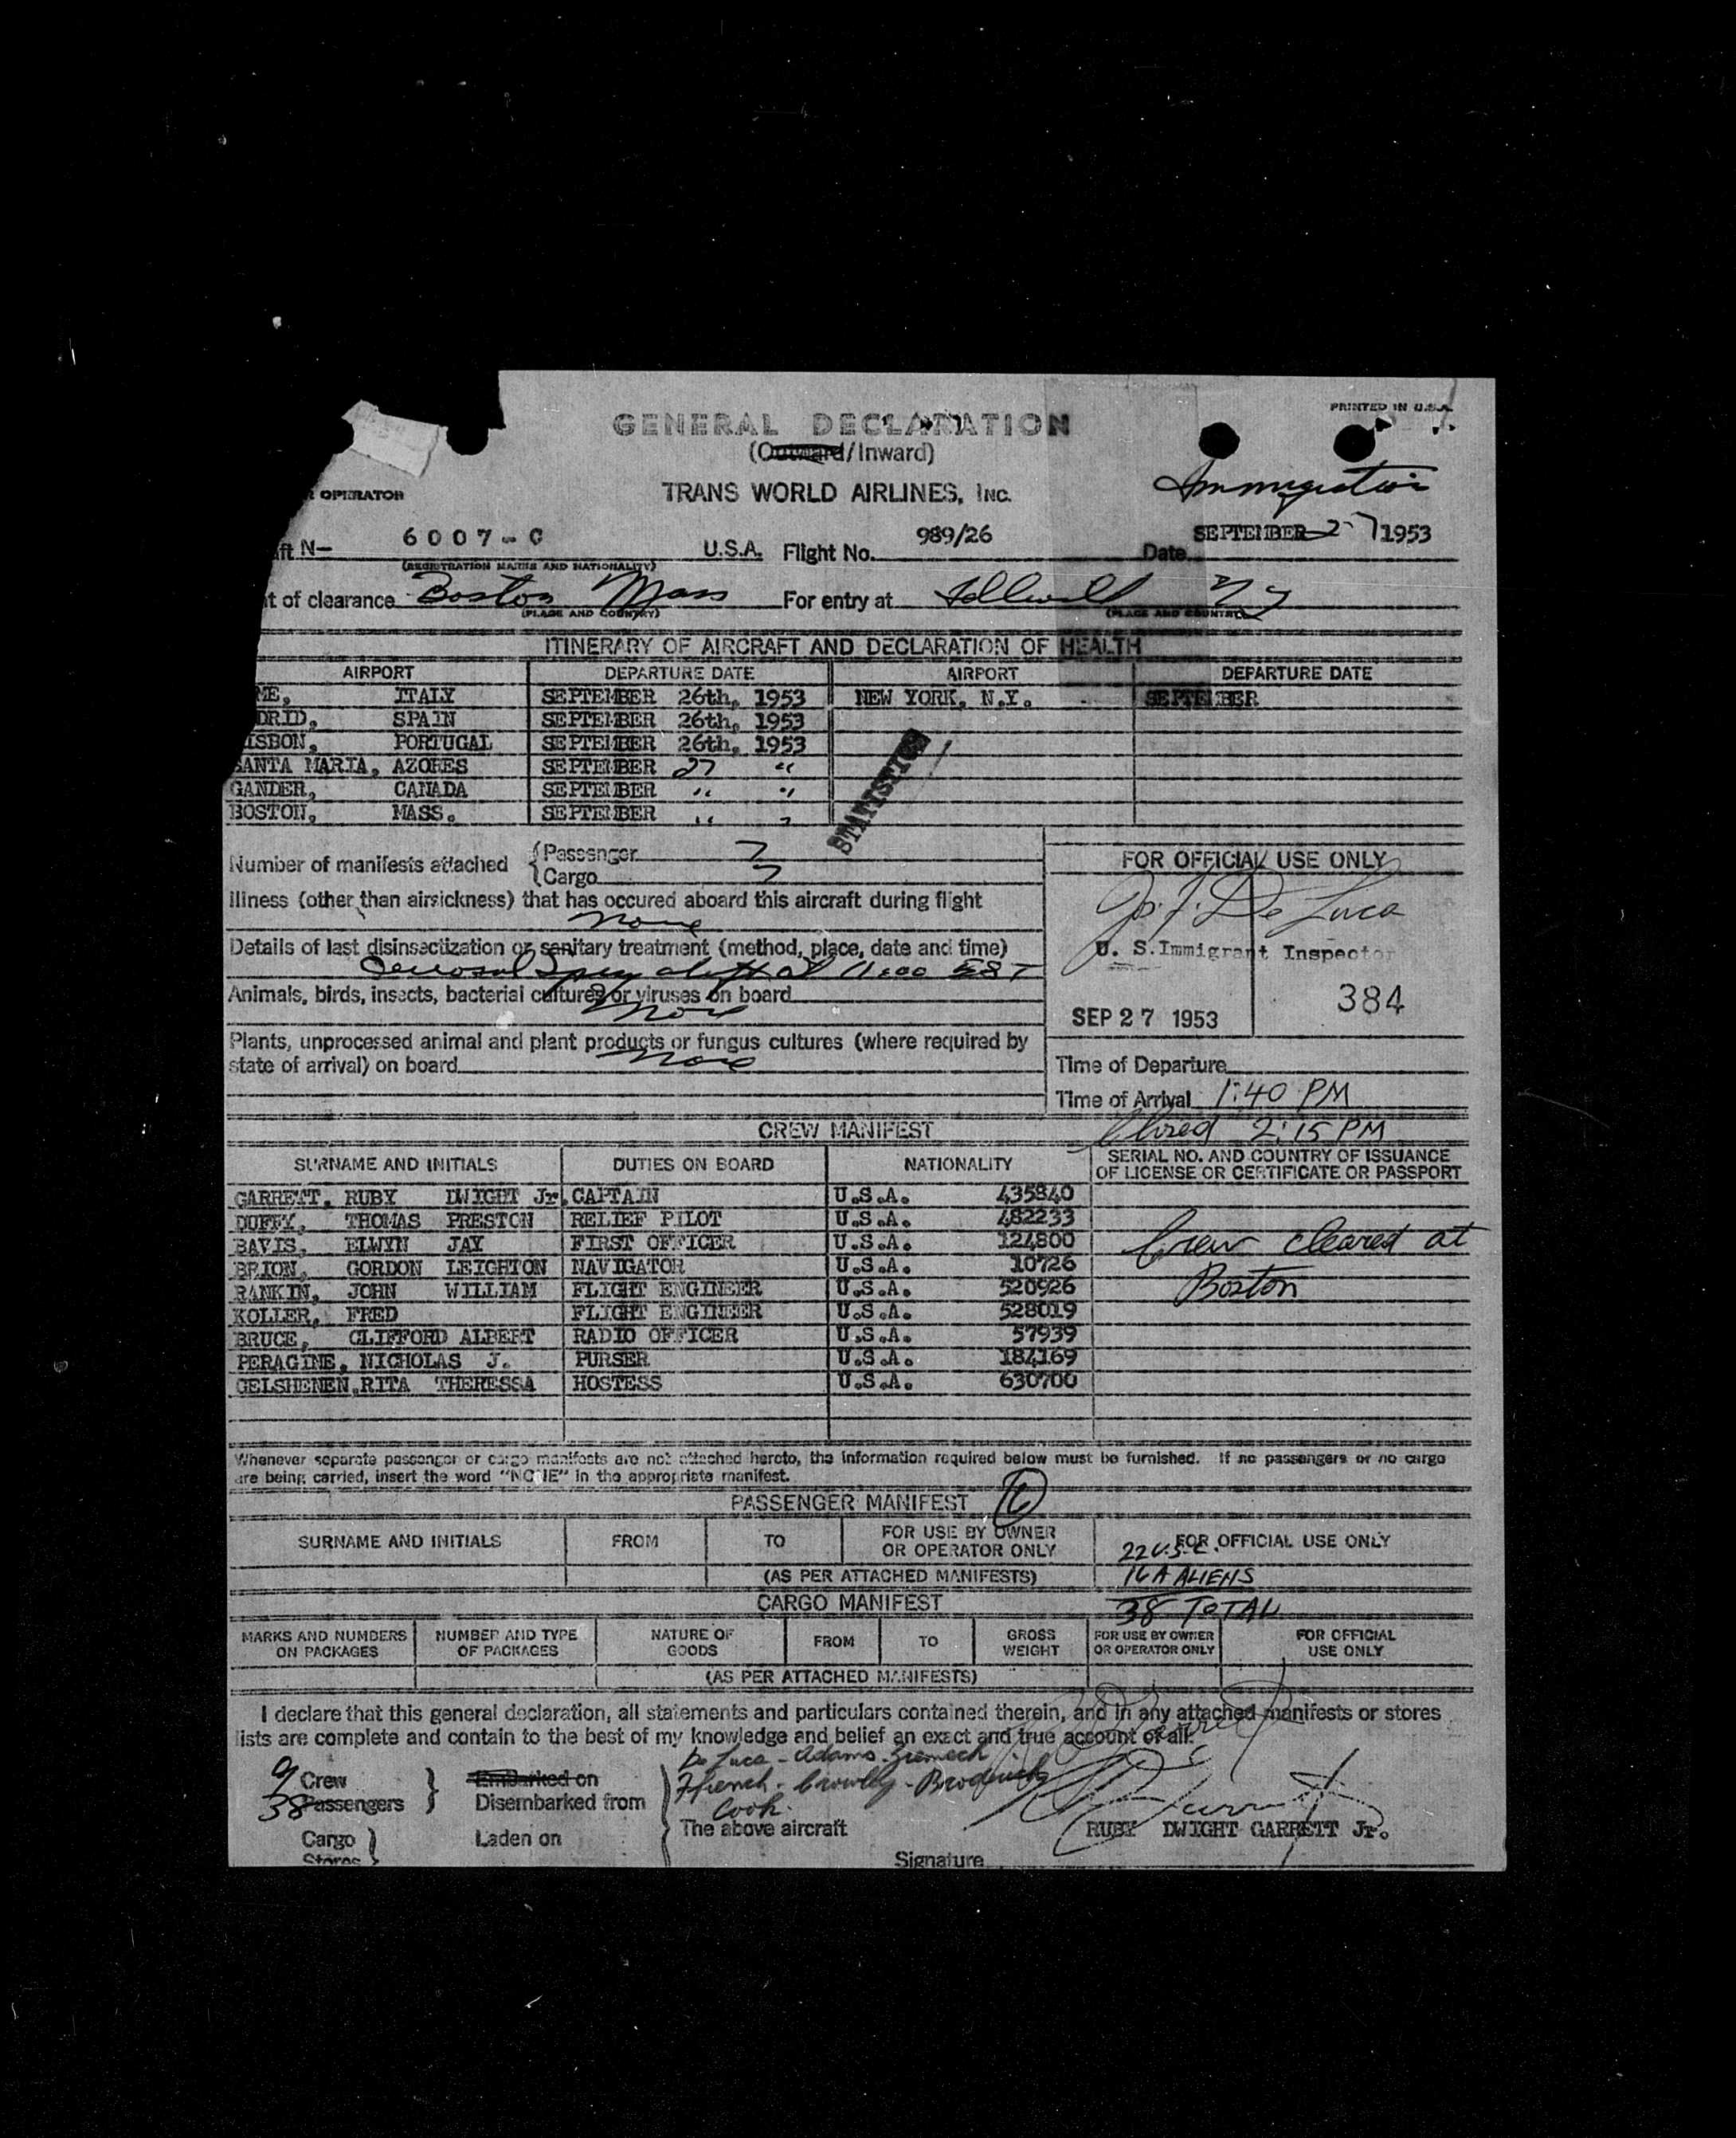 PRINTED IN U.S.A.
GENERAL DECLARATION
(Outward/Inward)
Immigration
R OPERATOR
TRANS WORLD AIRLINES, INC.
aft N- 6007-C U.S.A. Flight No. 989/26 Date SEPTEMBER 27 1953
(REGISTRATION MARKS AND NATIONALITY)
t of clearance Boston Mass For entry at Idlewild NY
(PLACE AND COUNTRY) (PLACE AND COUNTRY)
ITINERARY OF AIRCRAFT AND DECLARATION OF HEALTH
AIRPORT DEPARTURE DATE AIRPORT DEPARTURE DATE
ME, ITALY SEPTEMBER 26th, 1953 NEW YORK, N.Y. SEPTEMBER
DRID, SPAIN SEPTEMBER 26th, 1953
ISBON, PORTUGAL SEPTEMBER 26th, 1953
SANTA MARIA, AZORES SEPTEMBER 27 "
GANDER, CANADA SEPTEMBER " "
BOSTON, MASS. SEPTEMBER " "
STATISTICS
Number of manifests attached {Passenger
{Cargo
FOR OFFICIAL USE ONLY
Illness (other than airsickness) that has occured aboard this aircraft during flight
None
Jos. J. De Luca
Details of last disinsectization or sanitary treatment (method, place, date and time)
U. S. Immigrant Inspector
Aerosol Spray at 1100 EST
Animals, birds, insects, bacterial cultures or viruses on board
None
384
SEP 27 1953
Plants, unprocessed animal and plant products or fungus cultures (where required by
state of arrival) on board None
Time of Departure
Time of Arrival 1:40 PM
CREW MANIFEST
2:15 PM
SURNAME AND INITIALS DUTIES ON BOARD NATIONALITY SERIAL NO. AND COUNTRY OF ISSUANCE
OF LICENSE OR CERTIFICATE OR PASSPORT
GARRETT, RUBY DWIGHT Jr. CAPTAIN U.S.A. 435840
DUFFY, THOMAS PRESTON RELIEF PILOT U.S.A. 482233
BAVIS, ELWYN JAY FIRST OFFICER U.S.A. 124800 Crew cleared at
BRION, GORDON LEIGHTON NAVIGATOR U.S.A. 10726
RANKIN, JOHN WILLIAM FLIGHT ENGINEER U.S.A. 520926 Boston
KOLLER, FRED FLIGHT ENGINEER U.S.A. 528019
BRUCE, CLIFFORD ALBERT RADIO OFFICER U.S.A. 57939
PERAGINE, NICHOLAS J. PURSER U.S.A. 184169
GELSHENEN, RITA THERESSA HOSTESS U.S.A. 630700
Whenever separate passenger or cargo manifests are not attached hereto, the information required below must be furnished. If no passengers or no cargo
are being carried, insert the word "NONE" in the appropriate manifest.
PASSENGER MANIFEST
SURNAME AND INITIALS FROM TO FOR USE BY OWNER
OR OPERATOR ONLY FOR OFFICIAL USE ONLY
22 U.S.C.
(AS PER ATTACHED MANIFESTS) 16 A ALIENS
CARGO MANIFEST 38 TOTAL
MARKS AND NUMBERS
ON PACKAGES NUMBER AND TYPE
OF PACKAGES NATURE OF
GOODS FROM TO GROSS
WEIGHT FOR USE BY OWNER
OR OPERATOR ONLY FOR OFFICIAL
USE ONLY
(AS PER ATTACHED MANIFESTS)
I declare that this general declaration, all statements and particulars contained therein, and in any attached manifests or stores
lists are complete and contain to the best of my knowledge and belief an exact and true account of all:
De Luca - Adams -
9 Crew Embarked on French - Crowley - Broderick
38 Passengers Disembarked from Cook
Cargo Laden on The above aircraft RUBY DWIGHT GARRETT Jr.
Stores Signature